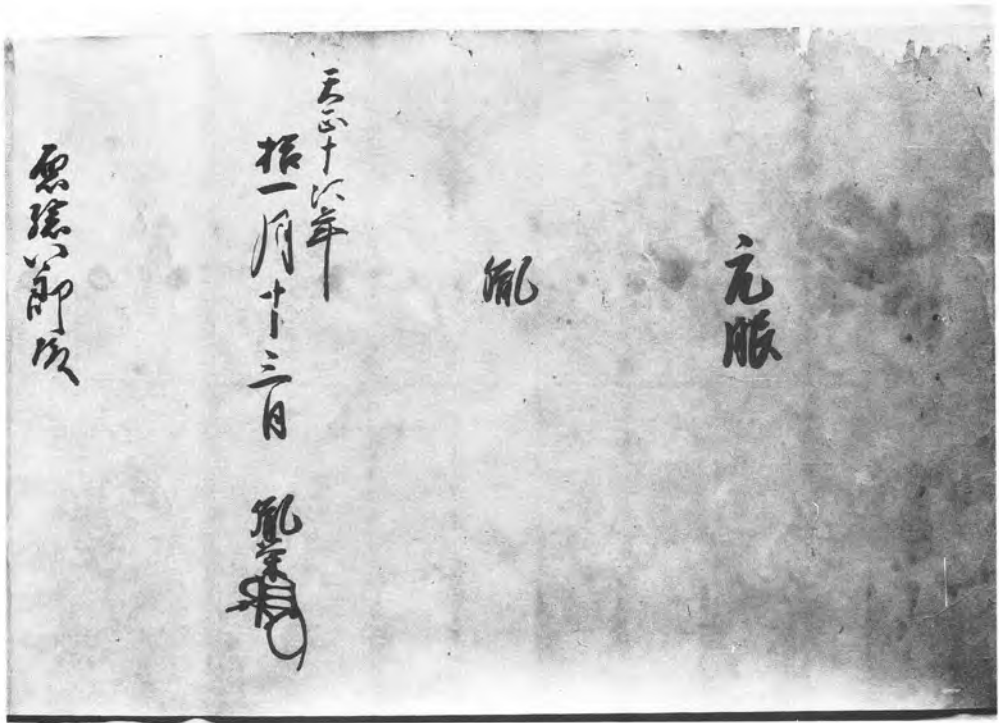 元服
胤
天正十六年
拾一月十三日 胤栄
八郎殿